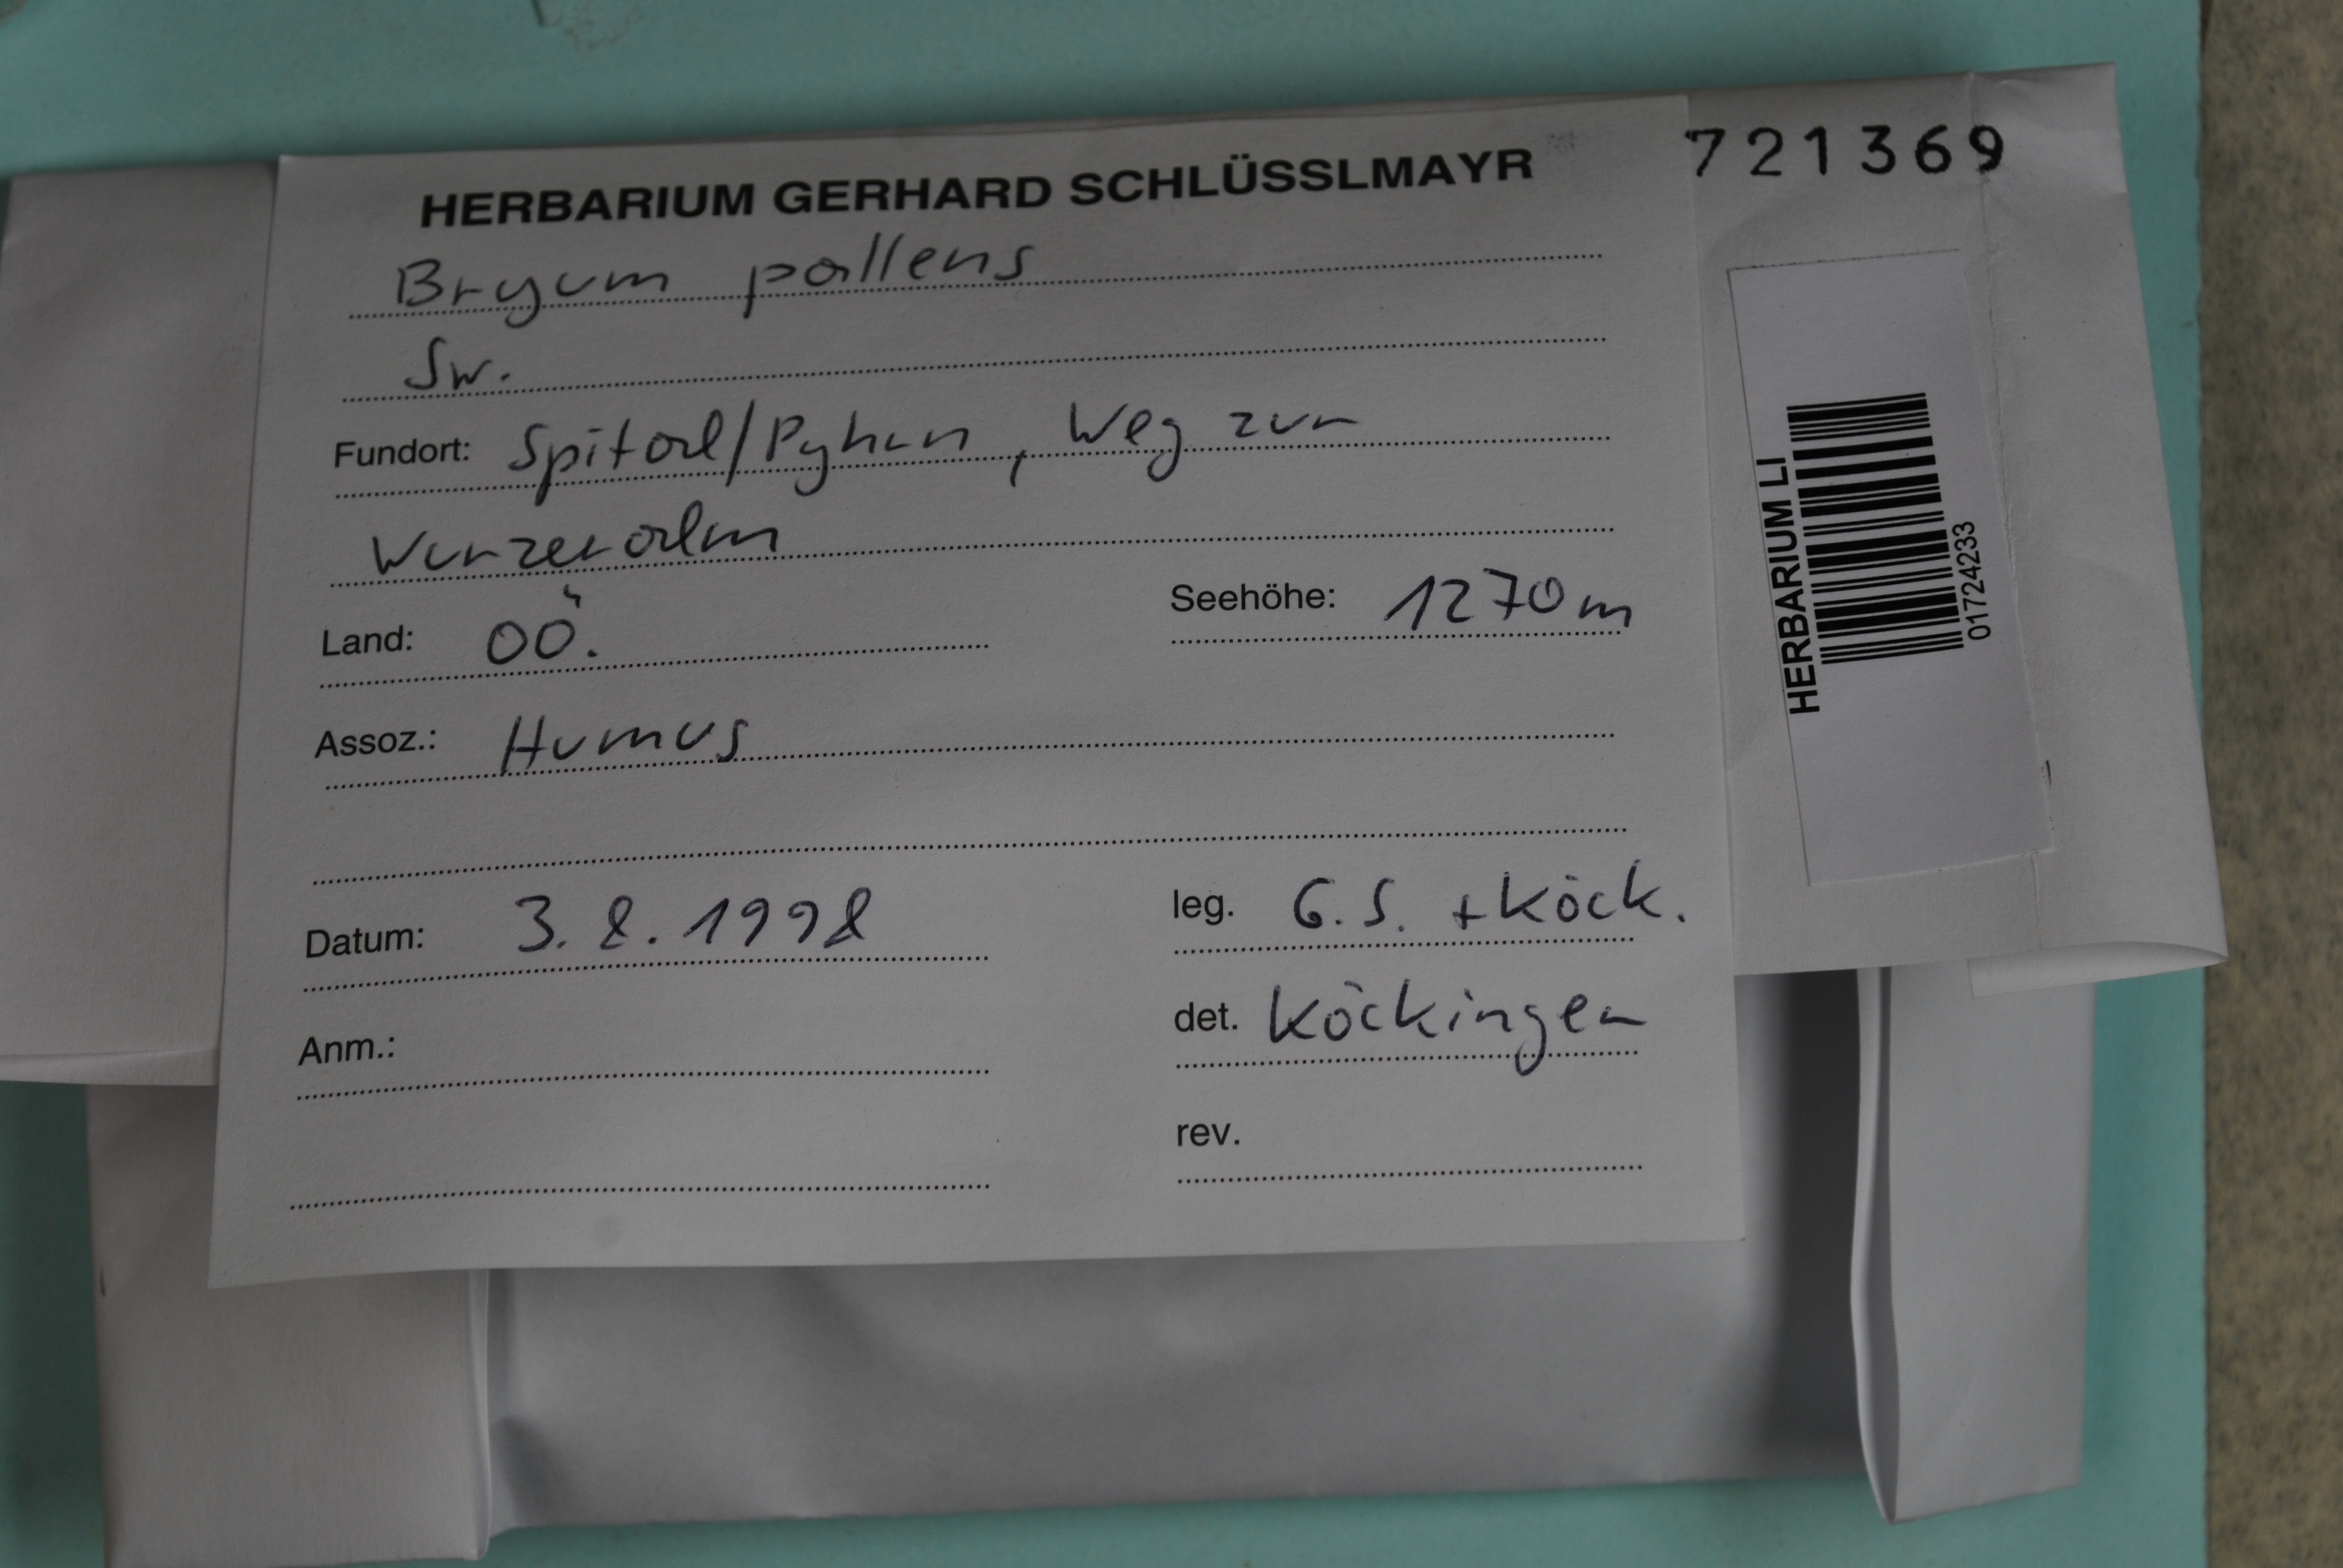 HERBARIUM GERHARD SCHLÜSSLMAYR
721369
Bryum pallens
Sw.
Fundort: Spital/Pyhrn, Weg zur
Wurzeralm
Land: OÖ.
Seehöhe: 1270m
Assoz.: Humus
Datum: 3. 8. 1998
leg. G.S. + Köck.
Anm.:
det. Köckinger
rev.
HERBARIUM LI
01724233